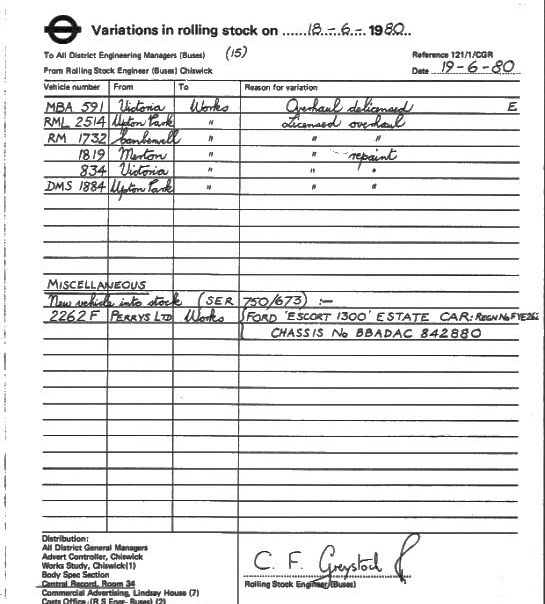 Variations in rolling stock on ......18.-.6.-.1980..
To All District Engineering Managers (Buses) (15) Reference 121/1/CGR
From Rolling Stock Engineer (Buses) Chiswick Date 19-6-80
Vehicle number From To Reason for variation
MBA 591 Victoria Works Overhaul delicensed E
RML 2514 Upton Park " Licensed overhaul
RM 1732 Camberwell " " "
1819 Merton " " repaint
834 Victoria " " "
DMS 1884 Upton Park " " "
MISCELLANEOUS
New vehicle into stock (SER 750/673) :-
2262F PERRYS LTD Works FORD 'ESCORT 1300' ESTATE CAR: REGN No FYE
CHASSIS No BBADAC 842880
Distribution:
All District General Managers
Advert Controller, Chiswick
Works Study, Chiswick(1)
Body Spec Section
Central Record, Room 34
Commercial Advertising, Lindsay House (7)
Costs Office (R S Engr- Buses) (2)
C. F. Greystock
Rolling Stock Engineer (Buses)